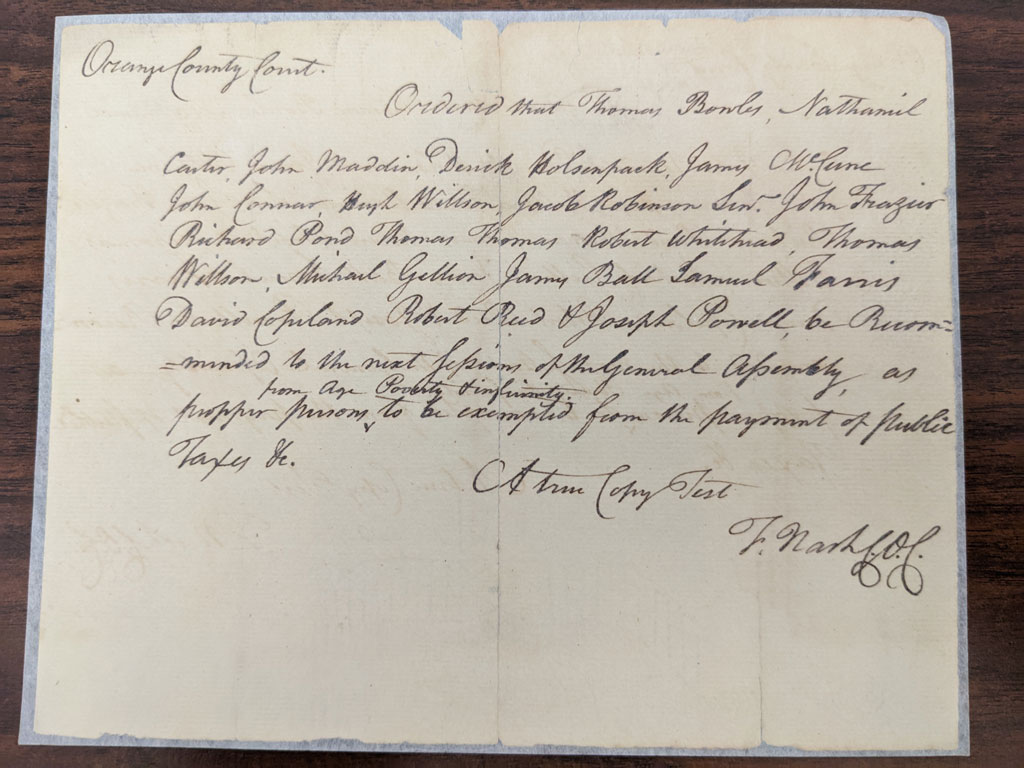 Orange County Court.
Ordered that Thomas Bowles, Nathaniel
Carter, John Maddin, Derick Holsenpack, James McCune
John Connar, Hugh Willson, Jacob Robinson Senr. John Frazier
Richard Pond Thomas Thomas Robert Whitehead, Thomas
Willson, Michael Gellion James Ball Samuel Farris
David Copeland Robert Reed & Joseph Powell, be Recom=
=mended to the next Sessions of the General Assembly, as
from Age Poverty & infirmity.
propper persons to be exempted from the payment of public
Taxes &c.
A true Copy Test
F. Nash C.O.C.